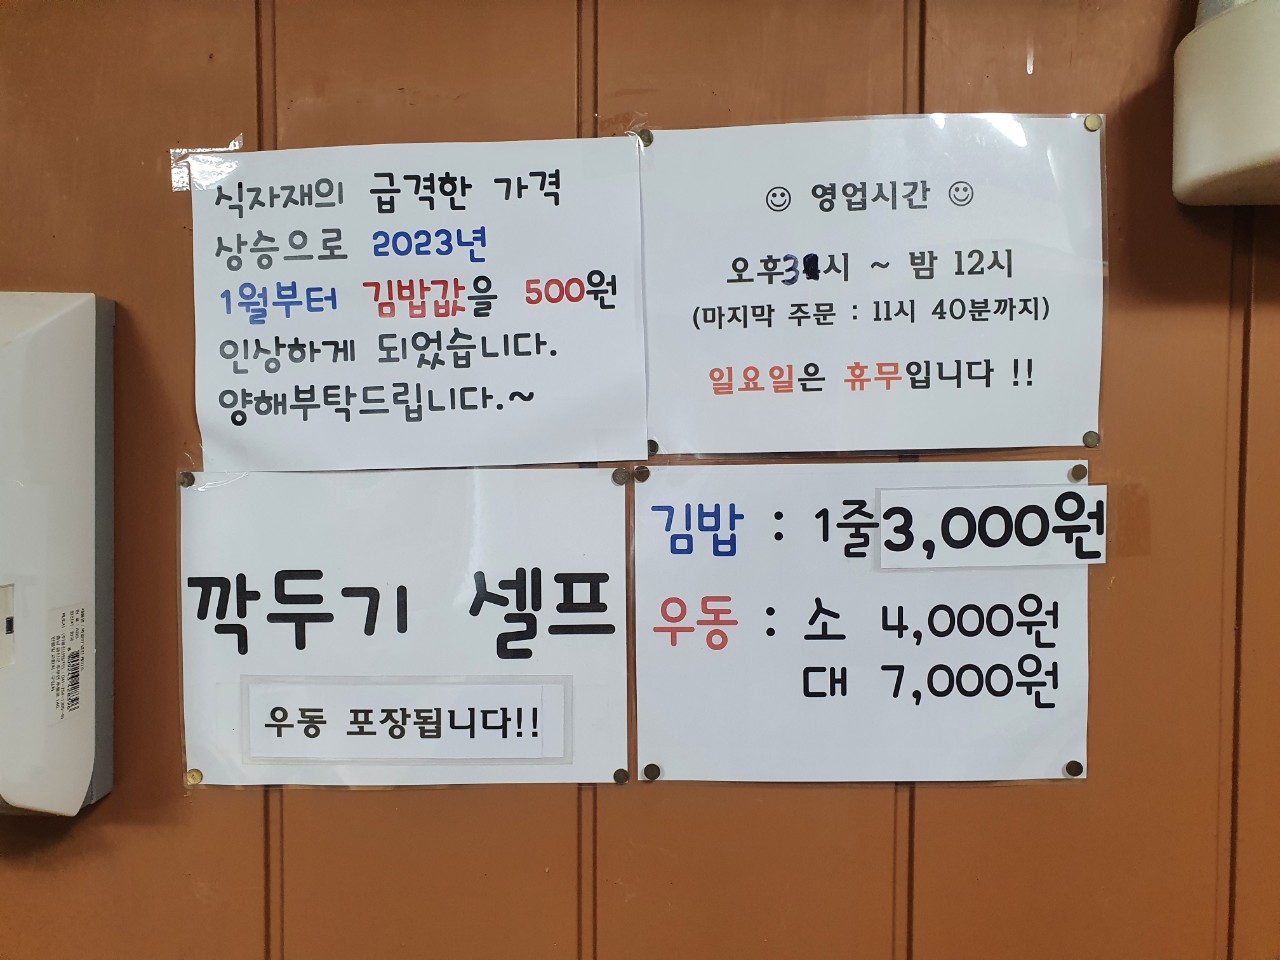 식자재의 급격한 가격
상승으로 2023년
1월부터 김밥값을 500원
인상하게 되었습니다.
양해부탁드립니다.~
영업시간
오후3시 ~ 밤 12시
(마지막 주문 : 11시 40분까지)
일요일은 휴무입니다 !!
깍두기 셀프
우동 포장됩니다!!
김밥 : 1줄3,000원
우동 : 소 4,000원
대 7,000원